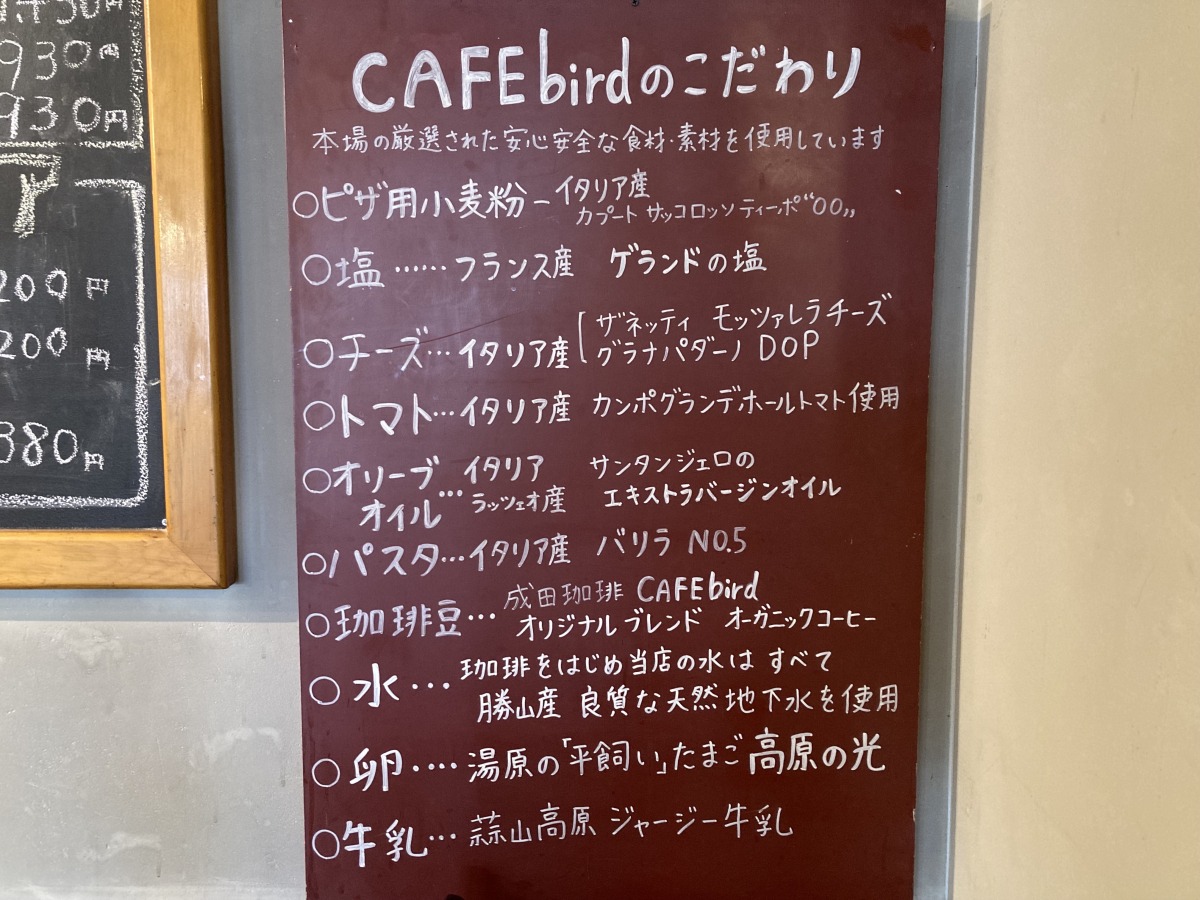 930円
930円
200円
200円
380円
CAFE birdのこだわり
本場の厳選された安心安全な食材・素材を使用しています
○ピザ用小麦粉–イタリア産
カプート サッコロッソ ティーポ“00„
○塩……フランス産 ゲランドの塩
○チーズ…イタリア産[ザネッティ モッツァレラチーズ
グラナパダーノ DOP
○トマト…イタリア産 カンポグランデホールトマト使用
○オリーブ イタリア サンタンジェロの
オイル…ラッツェオ産 エキストラバージンオイル
○パスタ…イタリア産 バリラ NO.5
○珈琲豆…成田珈琲 CAFE bird
オリジナルブレンド オーガニックコーヒー
○水…珈琲をはじめ当店の水は すべて
勝山産 良質な天然地下水を使用
○卵‥‥湯原の「平飼い」たまご 高原の光
○牛乳…蒜山高原 ジャージー牛乳